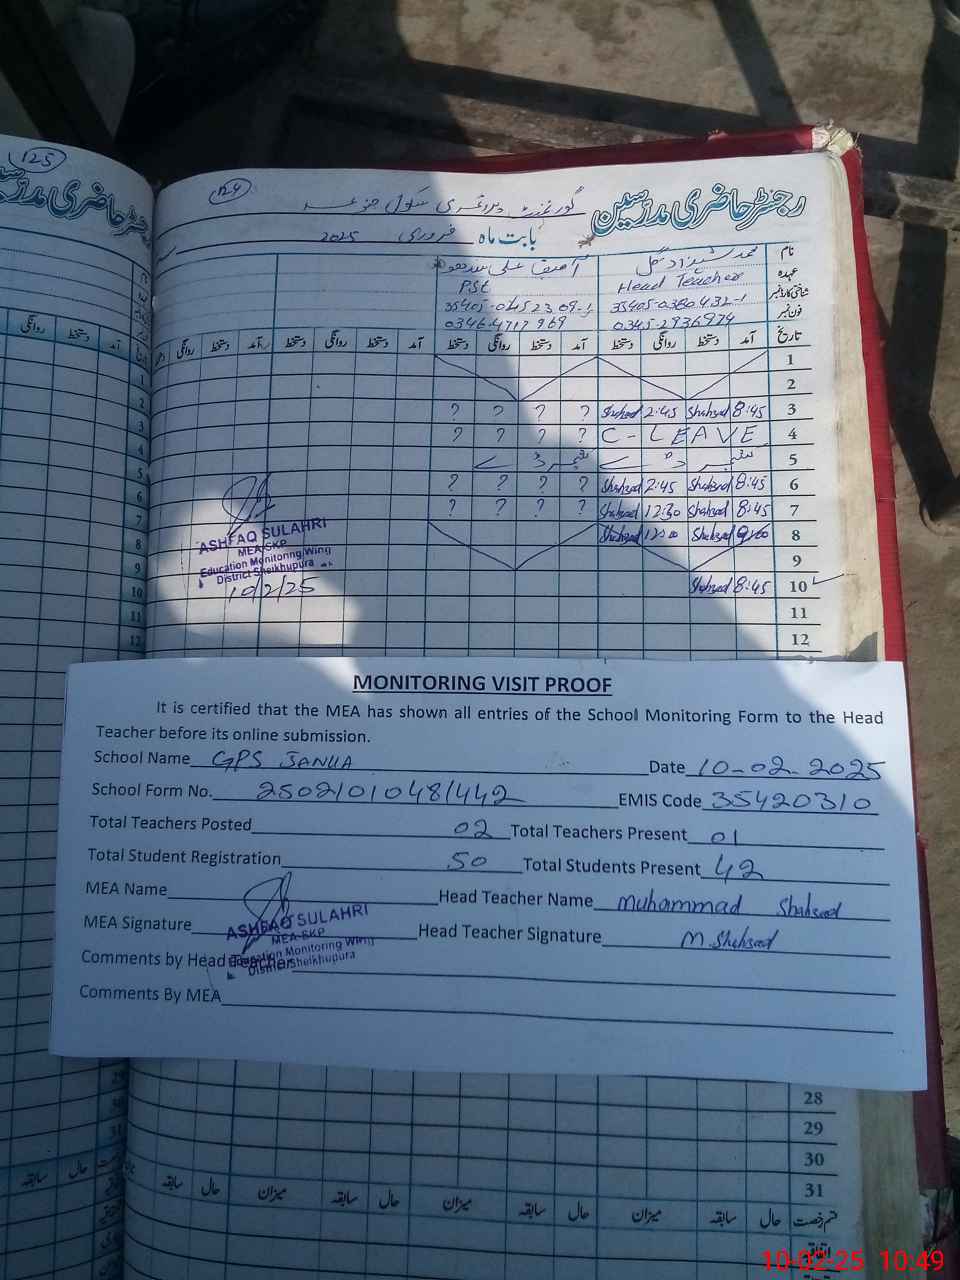 125
124
رجسٹر حاضری مدرسین
گورنمنٹ پرائمری سکول
بابت ماہ فروری 2025
نام محمد شہزاد گل آصف علی سدھو
عہدہ Head Teacher PST
شناختی کارڈ نمبر 35405-0380432-1 35405-0452309-1
فون نمبر 0345-2936974 03464717969
تاریخ آمد دستخط روانگی دستخط آمد دستخط روانگی دستخط آمد دستخط روانگی دستخط آمد دستخط روانگی
1
2
3 8:45 Shahzad 2:45 Shahzad ? ? ? ?
4 C-LEAVE ? ? ? ?
5
6 8:45 Shahzad 2:45 Shahzad ? ? ? ?
7 8:45 Shahzad 12:30 Shahzad ? ? ? ?
8 9:00 Shahzad 12:00 Shahzad
9
10 8:45 Shahzad
11
12
ASHFAQ SULAHRI
MEA-SKP
Education Monitoring Wing
District Sheikhupura
10/2/25
MONITORING VISIT PROOF
It is certified that the MEA has shown all entries of the School Monitoring Form to the Head
Teacher before its online submission.
School Name GPS JANUA Date 10-02-2025
School Form No. 25021010481442 EMIS Code 35420310
Total Teachers Posted 02 Total Teachers Present 01
Total Student Registration 50 Total Students Present 42
MEA Name Head Teacher Name Muhammad Shahzad
MEA Signature Head Teacher Signature M. Shahzad
ASHFAQ SULAHRI
MEA-SKP
Education Monitoring Wing
District Sheikhupura
Comments by Head Teacher
Comments By MEA
28
29
30
31
قسم رخصت حال سابقہ میزان حال سابقہ میزان حال سابقہ میزان حال سابقہ
اتفاقیہ
10-02-25 10:49